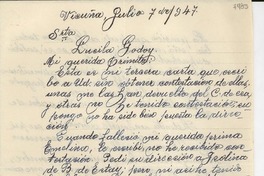 Vicuña Julio 7 de/947
Srta
Lucila Godoy.
Mi querida Primita:
Esta es mi tercera carta que escri
bo a Ud sin obtener contestación de ellas,
unas me las han devuelto del C. de era,
y otras no he tenido contestación su
pongo no ha sido bien puesta la direc
ción.
Cuando falleció mi querida prima
Emelina, le escribí, no he recibido con
testación. Pedí su dirección a Isolina
de B. de Estay, pero, ni así he tenido